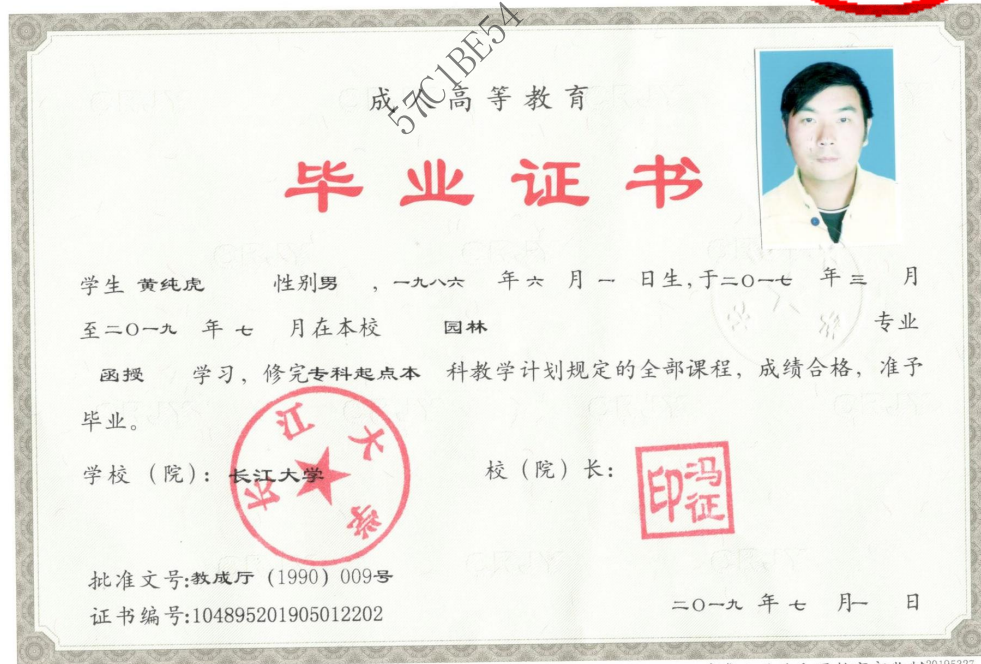 57C1BE54
成人高等教育
毕业证书
学生 黄纯虎 性别男 ，一九八六 年 六 月 一 日生，于二〇一七 年 三 月
至二〇一九 年 七 月在本校 园林 专业
函授 学习，修完专科起点本 科教学计划规定的全部课程，成绩合格，准予
毕业。
学校（院）：长江大学 校（院）长：
长江大学
冯征印
批准文号:教成厅（1990）009号
证书编号:104895201905012202
二〇一九 年 七 月一 日
20195327